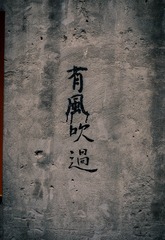 有風吹過